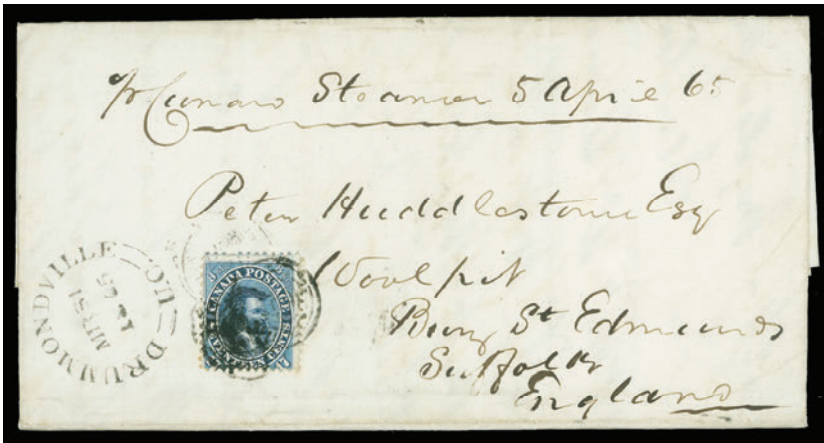 pr Cunard Steamer 5 April 65
Peter Huddlestone Esq
Woolpit
Bury St Edmunds
Suffolk
England
DRUMMONDVILLE U.C.
MR 31
1865
CANADA POSTAGE
SEVENTEEN CENTS